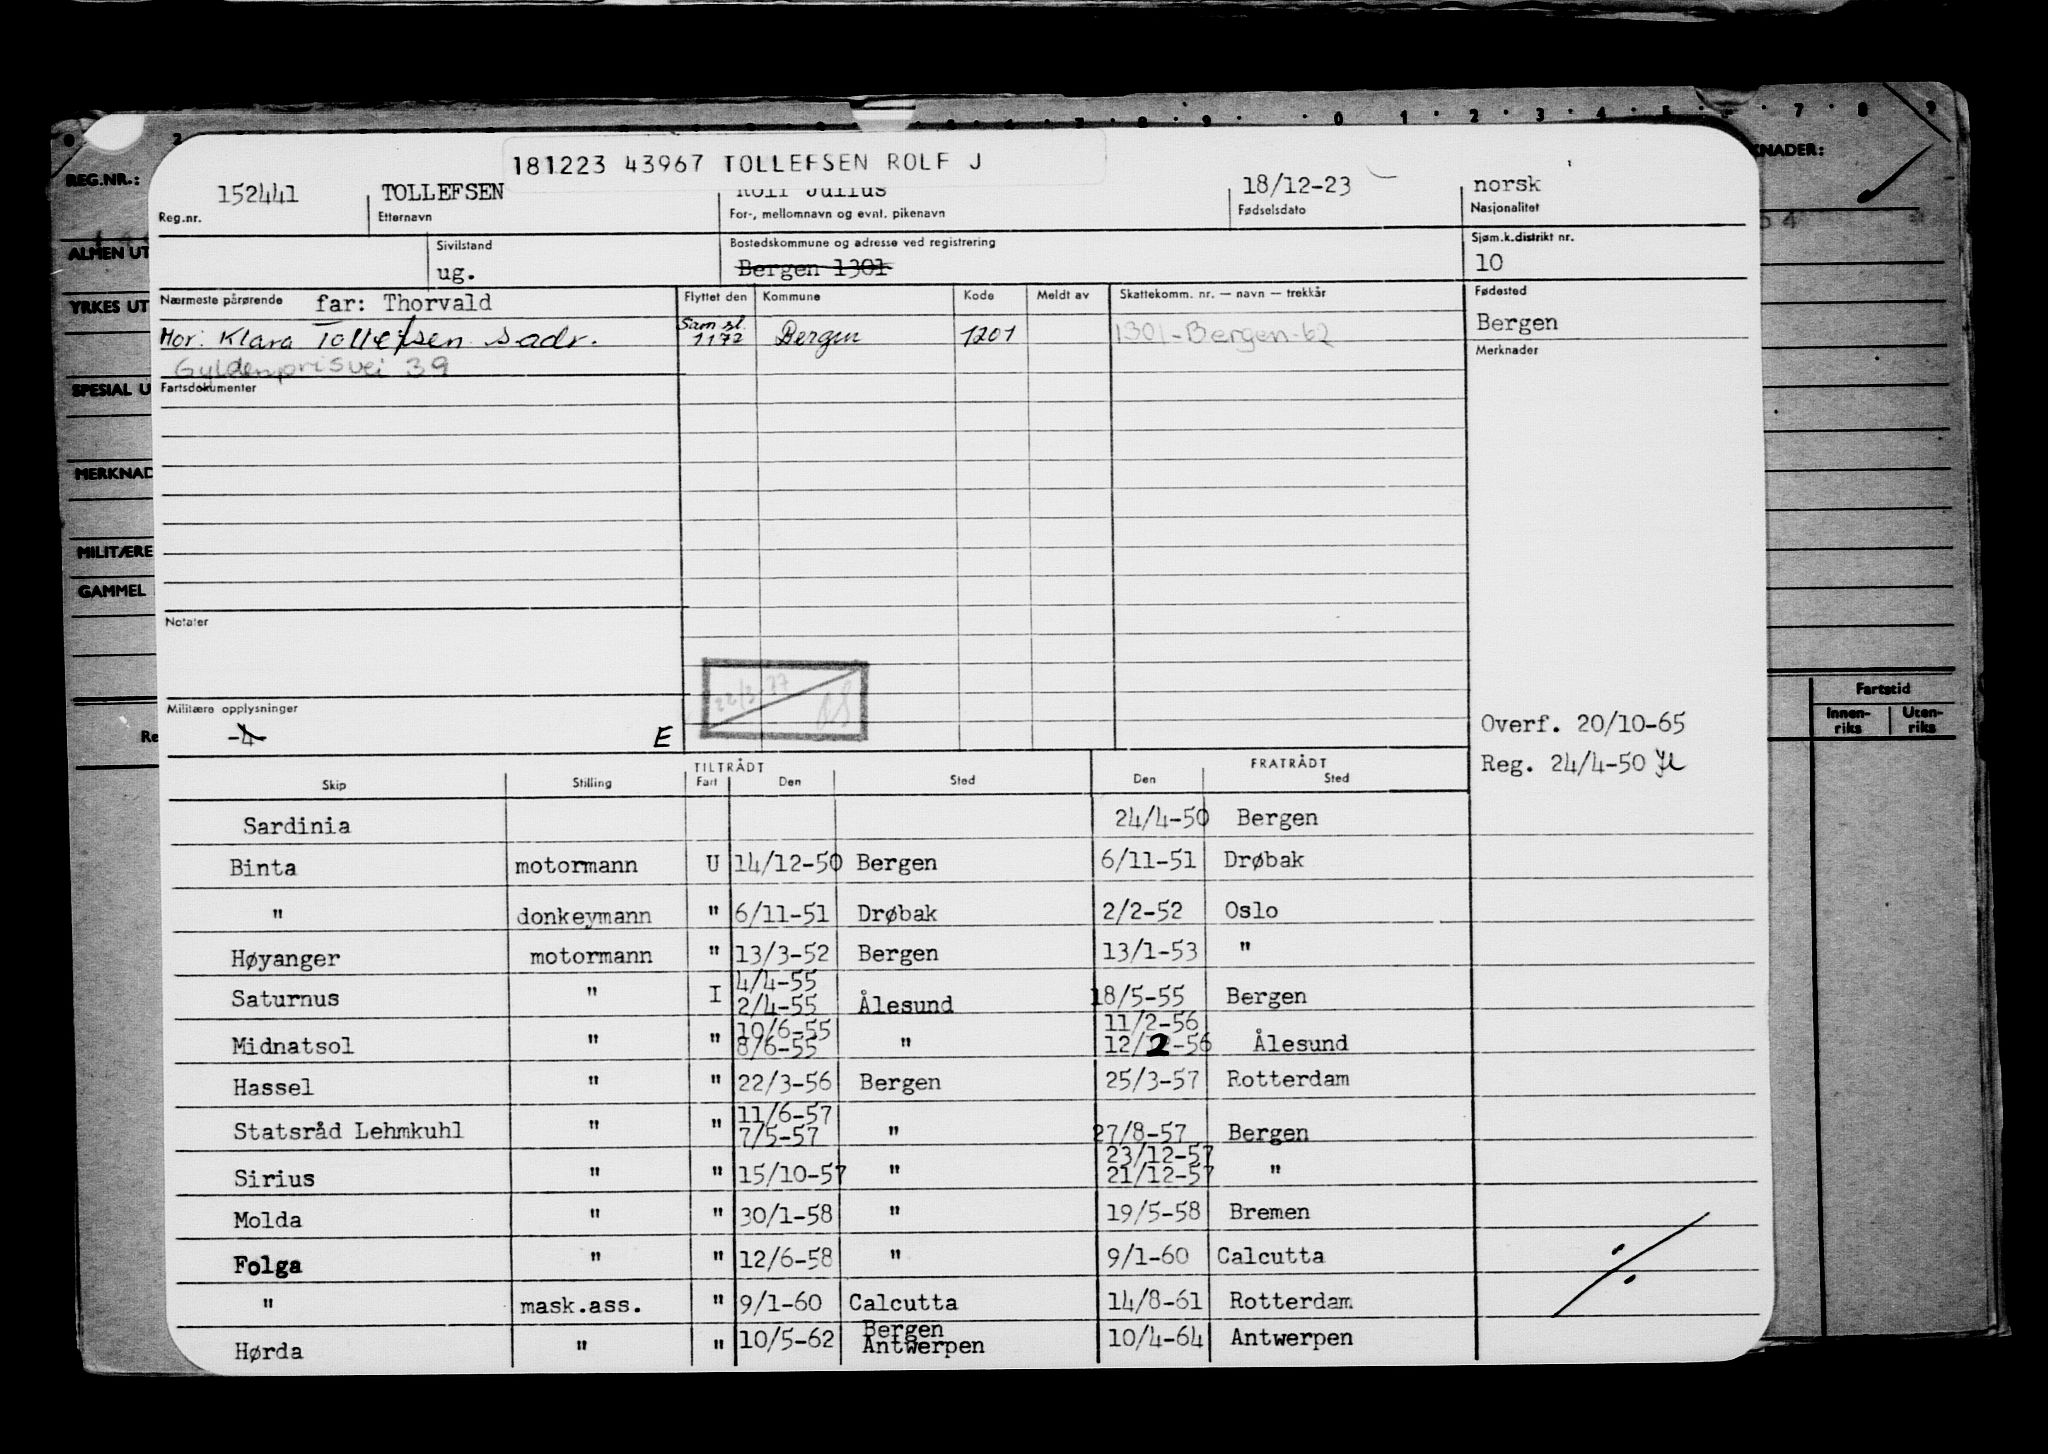 2 7 8 9 0 1 2 3 4 5 7 8 9
REG.NR.:
KNADER:
181223 43967 TOLLEFSEN ROLF J
152441 TOLLEFSEN Rolf Julius 18/12-23 norsk
Reg.nr. Etternavn For-, mellomnavn og evnt. pikenavn Fødselsdato Nasjonalitet
ALMEN UT
Sivilstand Bostedskommune og adresse ved registrering Sjøm.k.distrikt nr.
ug. Bergen 1301 10
YRKES UT
Nærmeste pårørende far: Thorvald Flyttet den Kommune Kode Meldt av Skattekomm. nr. — navn — trekkår Fødested
Mor: Klara Tollefsen sadr. 1172 Bergen 1201 1301-Bergen-62 Bergen
Gyldenprisvei 39 Merknader
SPESIAL U Fartsdokumenter
MERKNAD
MILITÆRE
GAMMEL
Notater
22/3-77
Militære opplysninger
-4- E
Overf. 20/10-65
Reg. 24/4-50
Fartstid
Innen-riks Uten-riks
Re
TILTRÅDT FRATRÅDT
Skip Stilling Fart Den Sted Den Sted
Sardinia 24/4-50 Bergen
Binta motormann U 14/12-50 Bergen 6/11-51 Drøbak
" donkeymann " 6/11-51 Drøbak 2/2-52 Oslo
Høyanger motormann " 13/3-52 Bergen 13/1-53 "
4/4-55
Saturnus " I 2/4-55 Ålesund 18/5-55 Bergen
10/6-55 11/2-56
Midnatsol " " 8/6-55 " 12/2-56 Ålesund
Hassel " " 22/3-56 Bergen 25/3-57 Rotterdam
11/6-57
Statsråd Lehmkuhl " " 7/5-57 " 27/8-57 Bergen
23/12-57
Sirius " " 15/10-57 " 21/12-57 "
Molda " " 30/1-58 " 19/5-58 Bremen
Folga " " 12/6-58 " 9/1-60 Calcutta
" mask.ass. " 9/1-60 Calcutta 14/8-61 Rotterdam
Bergen
Hørda " " 10/5-62 Antwerpen 10/4-64 Antwerpen